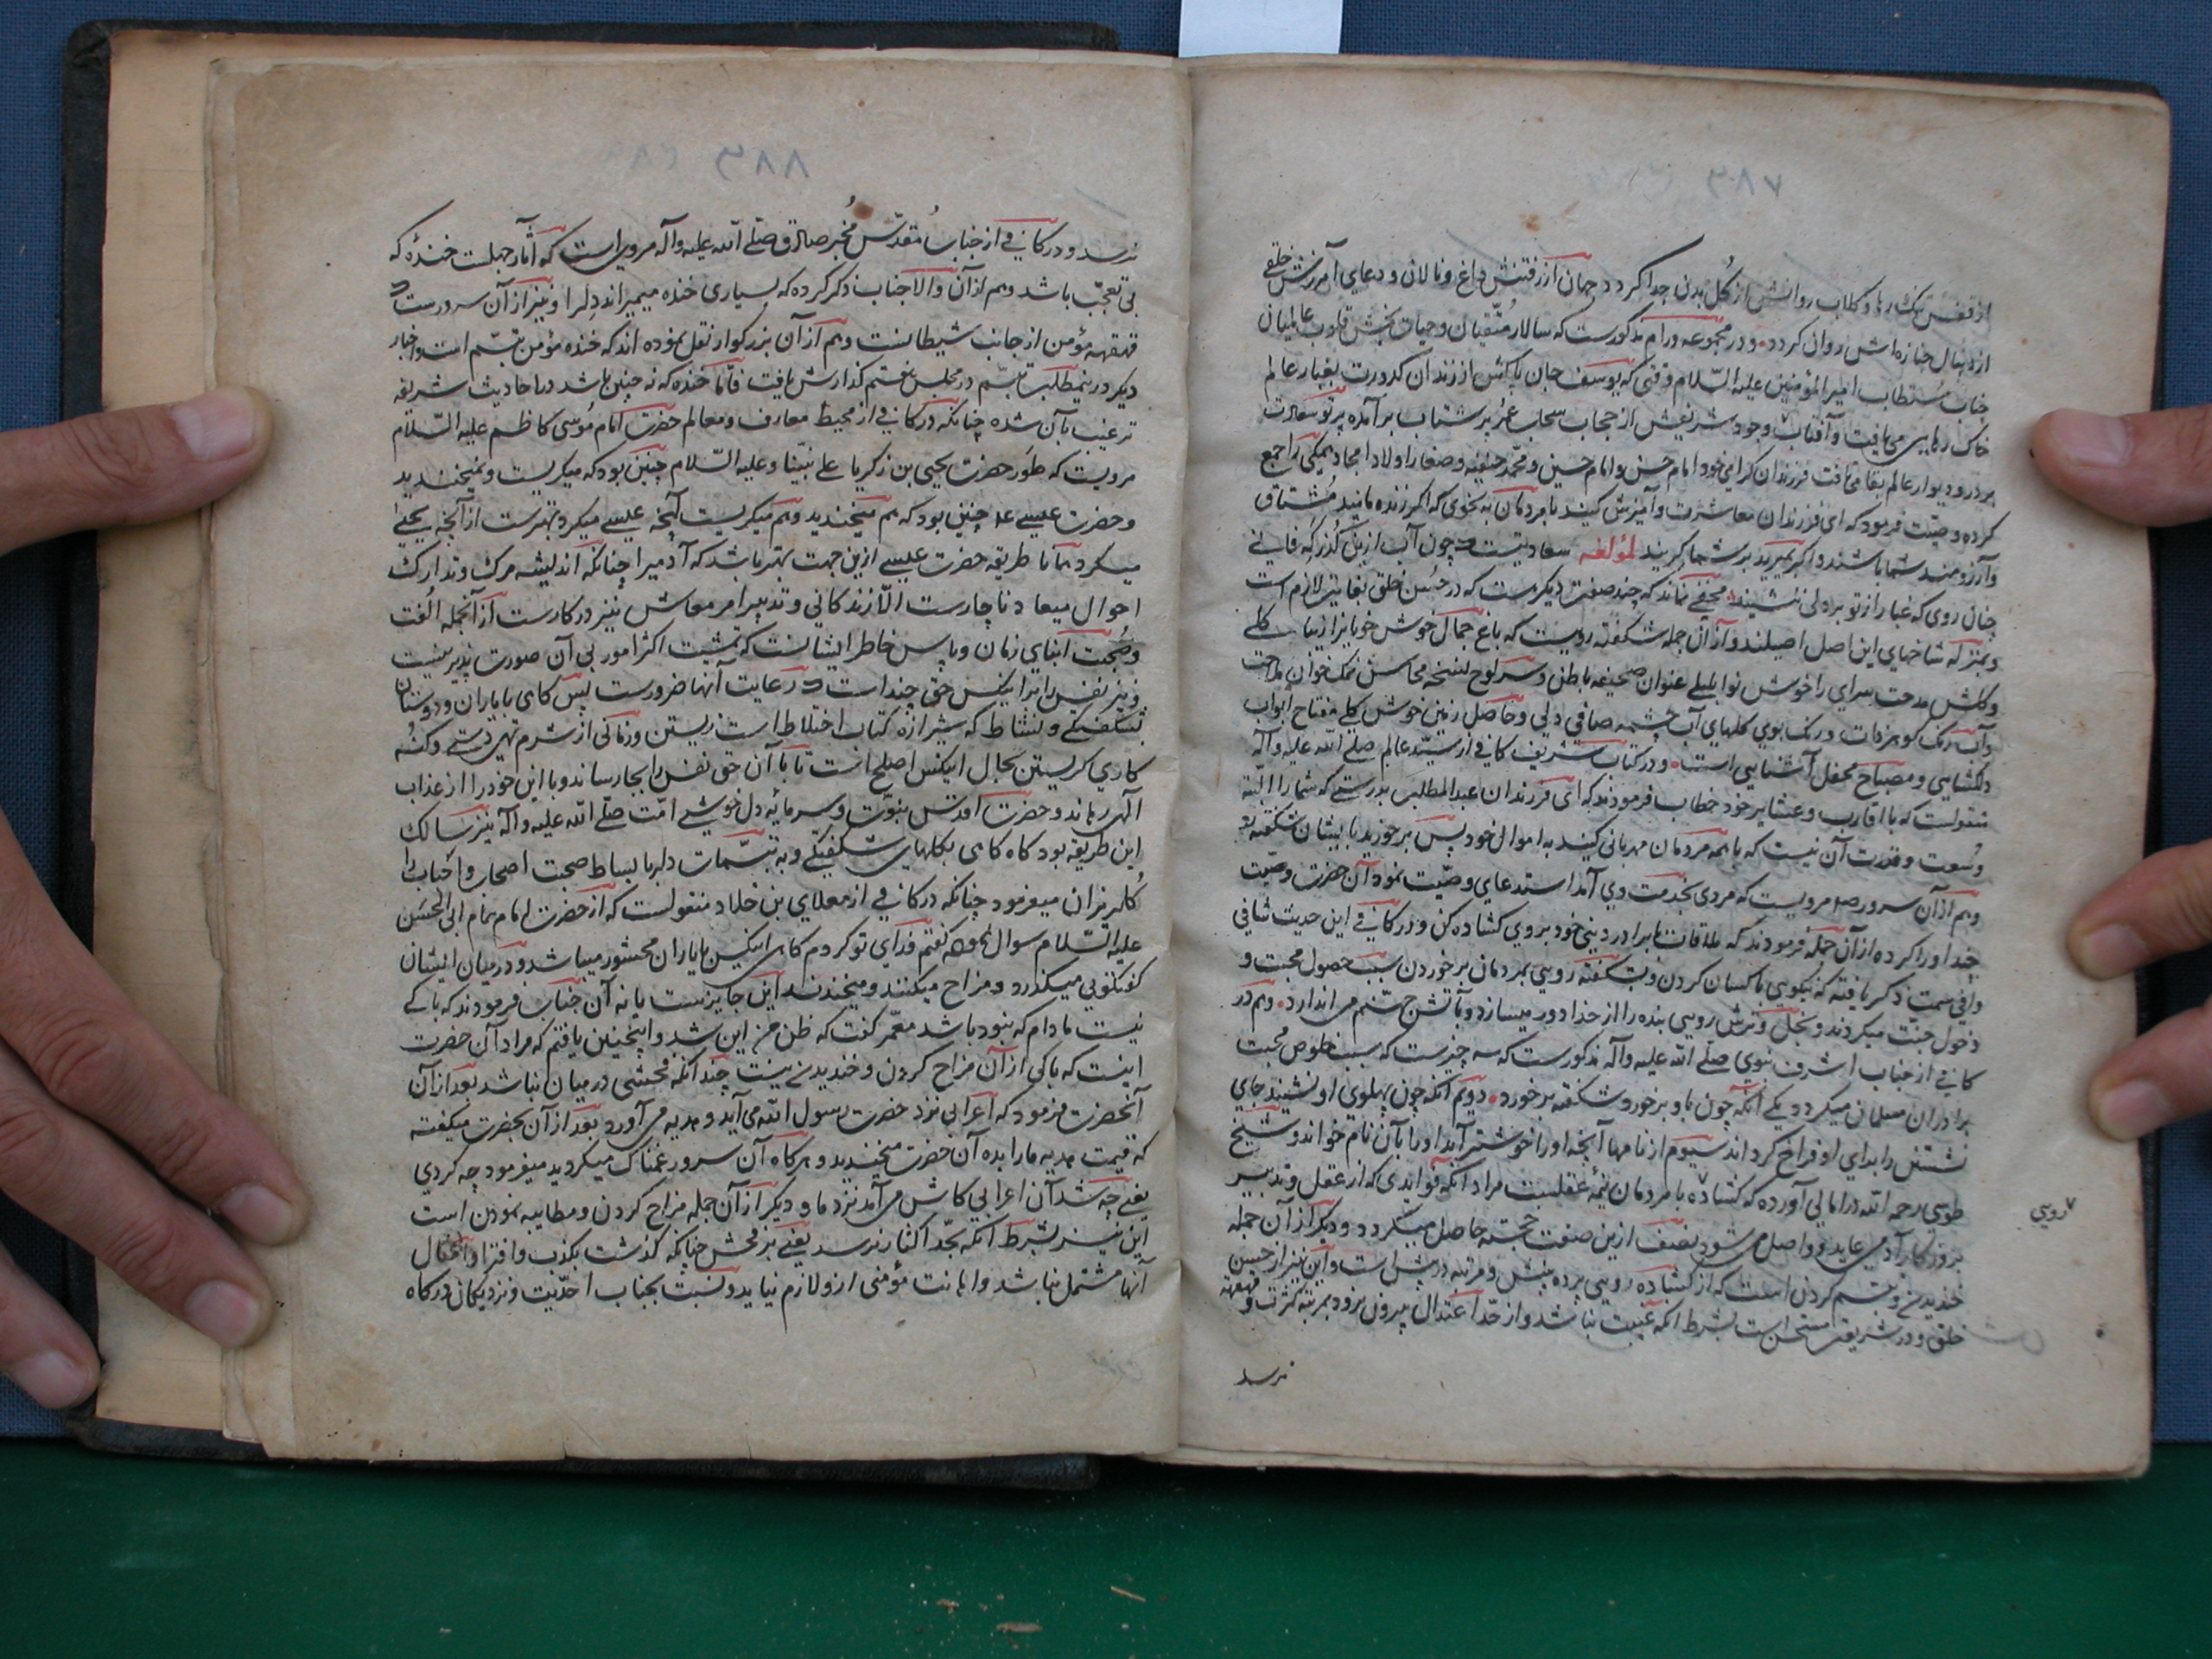 ۳۸۷
از قفس تنک رها و کلاب روانش از کل بدن جدا کردد جهان از رفتنش داغ و نالان و دعای آمرزش خلقی
از دنبال جنازه‌اش روان کردد و در مجموعه ورام مذکورست که سالار متقیان و حیات بخش قلوب عالمیان
جناب مستطاب امیر المؤمنین علیه السّلام وقتی که یوسف جان پاکش از زندان کدورت بغبار عالم
خاک رهایی می یافت و آفتاب وجود شریفش از حجاب سحاب عمر پر شتاب بر آمده پرتو سعادت
بر در و دیوار عالم بقا می تافت فرزندان کرامی خود امام حسن و امام حسین و محمد حنیفه و صغار اولاد امجاد همکی را جمع
کرده وصیت فرمود که ای فرزندان معاشرت و آمیزش کنید با مردمان به نحوی که اکر زنده مانید مشتاق
و آرزومند شما باشند و اکر بمیرید بر شما کریند لمؤلفه سعادتیست چون آب ازین کذرکه فانی
چنان روی که غبار از تو بر دلی ننشیند مخفی نماند که چند صفت دیکرست که در حسن خلق بغایت لازم است
و بمنزله شاخهای این اصل اصیلند و از آن جمله شکفته روییست که باغ جمال خوش خویانرا زیبا کلی
و کلشن مدحت سرای را خوش نوا بلبلی عنوان صحیفه باطن و سرلوح نسخه محاسن نمک خوان ملاحت
و آب رنک کوهر ذات و رنک بوی کلهای آب چشمه صافی دلی و حاصل زمین خوش کلی مفتاح ابواب
دلکشایی و مصباح محفل آشنایی است و در کتاب شریف کافی از سیّد عالم صلی الله علیه و آله
منقولست که با اقارب و عشایر خود خطاب فرمودند که ای فرزندان عبد المطلب بدرستی که شما را البته
وسعت و قدرت آن نیست که با همه مردمان مهربانی کنید به اموال خود پس برخورید با ایشان شکفته رو
و هم از آن سرور ص مرویست که مردی بخدمت وی آمد استدعای وصیّت نمود آن حضرت وصیّت
چند او را کرده از آن جمله فرمودند که ملاقات برادر دینی خود بروی کشاده کن و در کافی این حدیث شافی
وافی سمت ذکر یافته که نیکویی با کسان کردن و بشکفته رویی بمردمان برخوردن سبب حصول محبت و
دخول جنت میکردند و بخل و ترش رویی بنده را از خدا دور میسازد و بآتش جهنم می اندازد و هم در
کافی از جناب اشرف نبوی صلی الله علیه و آله مذکورست که سه چیزست که سبب خلوص محبت
برادران مسلمان میکردد یکی آنکه چون باو برخورد شکفته برخورد دویم آنکه چون پهلوی او نشیند جای
نشستن را برای او فراخ کرداند سیوم از نامها آنچه او را خوشتر آید او را بآن نام خواند و شیخ
طوسی رحمه الله در امالی آورده که کشاده با مردمان نیمه عقلست مراد آنکه فوایدی که از عقل و تدبیر
روی
بروزکار آدمی عاید و واصل می شود نصف ازین صفت خجسته حاصل میکردد و دیکر از آن جمله
خندیدن و تبسم کردن است که از کشاده رویی پرده بیش و مرتبه در پیش است و این نیز از حسن
خلق و در شریعت مستحسن است بشرط آنکه غیبت نباشد و از حدّ اعتدال بیرون نرود بمرتبه کثرت و قهقهه
نرسد
۳۸۸
نرسد و در کافی از جناب مقدّس مخبر صادق صلّی الله علیه و آله مروی است که از آثار جهلست خندهٔ که
بی تعجّب باشد و هم از آن والا جناب ذکر کرده که بسیاری خنده میمیراند دلرا و نیز از آن سرورست که
قهقهه مؤمن از جانب شیطانست و هم از آن بزرکوار نقل نموده اند که خنده مؤمن تبسّم است و اخبار
دیکر در نمطلب تبسّم در مجلس هفتم کذارش یافت فامّا خنده که نه چنین باشد در احادیث شریفه
ترغیب بآن شده چنانکه در کافی از محیط معارف و معالم حضرت امام موسی کاظم علیه السّلام
مرویست که طور حضرت یحیی بن زکریا علی نبیّنا و علیه السّلام چنین بود که میکریست و نمیخندید
و حضرت عیسی ع چنین بود که هم میخندید و هم میکریست آنچه عیسی میکرد بهترست از آنچه یحیی
میکرد همانا طریقه حضرت عیسی ازین جهت بهتر باشد که آدمیرا چنانکه اندیشه مرک و تدارک
احوال معاد ناچارست الا زندکانی و تدبیر امر معاش نیز در کارست از آنجمله الفت
و صحبت ابنای زمان و پاس خاطر ایشانست که تمشیت اکثر امور بی آن صورت پذیر نیست
و نیز نفس را نزد ایکس حق چند است که رعایت آنها ضرورست پس کاهی با یاران و دوستان
بشکفتکی و نشاط که شیرازه کتاب اختلاط است زیستن و زمانی از شرم تهی دستی و کنه
کاری کریستن بحال ایکس اصلح است تا با آن حق نفس را بجا رساند و با این خود را از عذاب
الهی رهاند و حضرت اقدس نبوّت و سرمایه دل خوشی امّت صلّی الله علیه و آله نیز سالک
این طریقه بود کاه کاهی بکلهای شکفتکی و به تبسّمات دلربا بساط صحبت اصحاب و احباب را
کلریزان میفرمود چنانکه در کافی از معلای بن خلاد منقولست که از حضرت امام همام ابی الحسن
علیه السّلام سوال نموده کفتم فدای تو کردم کاهی ایکس با یاران محشور میباشد و در میان ایشان
کفتکویی میکذرد و مزاح میکنند و میخندند این جایزست یا نه آن جناب فرمودند که باکی
نیست مادام که نبود باشد معمّر کفت که ظن من این شد و اینچنین یافتم که مراد آن حضرت
اینست که باکی از آن مزاح کردن و خندیدن نیست چندانکه فحشی در میان نباشد بعد از آن
آنحضرت فرمود که اعرابی نزد حضرت رسول الله می آید و هدیه می آورد بعد از آن بحضرت میکفته
که قیمت هدیه ما را بده آن حضرت میخندید و هرکاه آن سرور غمناک میکردید میفرمود چه کردی
یعنی چه شد آن اعرابی کاش می آمد نزد ما و دیکر از آن جمله مزاح کردن و مطایبه نمودن است
این نیز بشرط آنکه بحدّ اکثار نرسد یعنی بر فحش چنانکه کذشت بکذب و افترا و امثال
آنها مشتمل نباشد و اهانت مؤمنی ازو لازم نیاید و نسبت بجناب احدّیت و نزدیکان درکاه